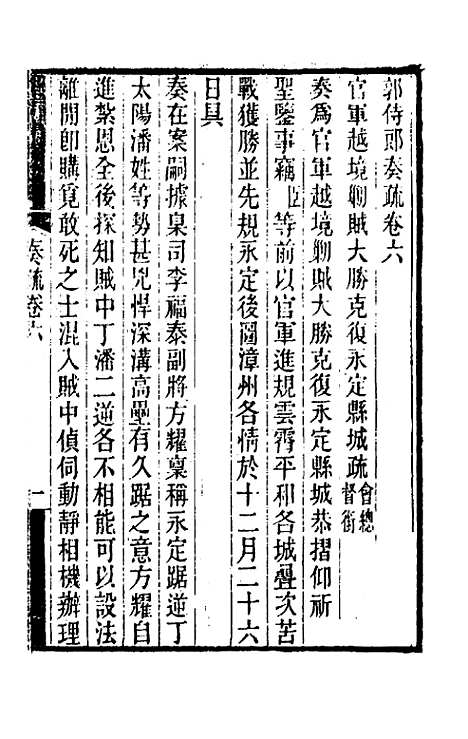 郭侍郎奏疏卷六
官軍越境勦賊大勝克復永定縣城疏會總督銜
奏爲官軍越境勦賊大勝克復永定縣城恭摺仰祈
聖鑒事竊臣等前以官軍進規雲霄平和各城疊次苦
戰獲勝並先規永定後圖漳州各情於十二月二十六
日具
奏在案嗣據臬司李福泰副將方耀稟稱永定踞逆丁
太陽潘姓等勢甚兇悍深溝高壘有久踞之意方耀自
進紮恩全後探知賊中丁潘二逆各不相能可以設法
離開卽購覓敢死之士混入賊中偵伺動靜相機辦理
奏疏卷六
一